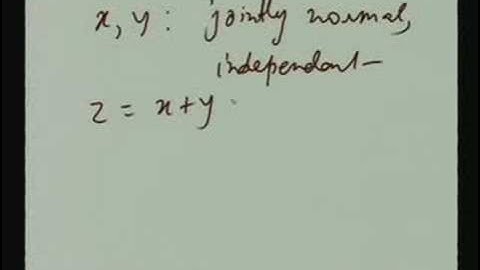 x, y : jointly normal,
independent –
z = x + y .